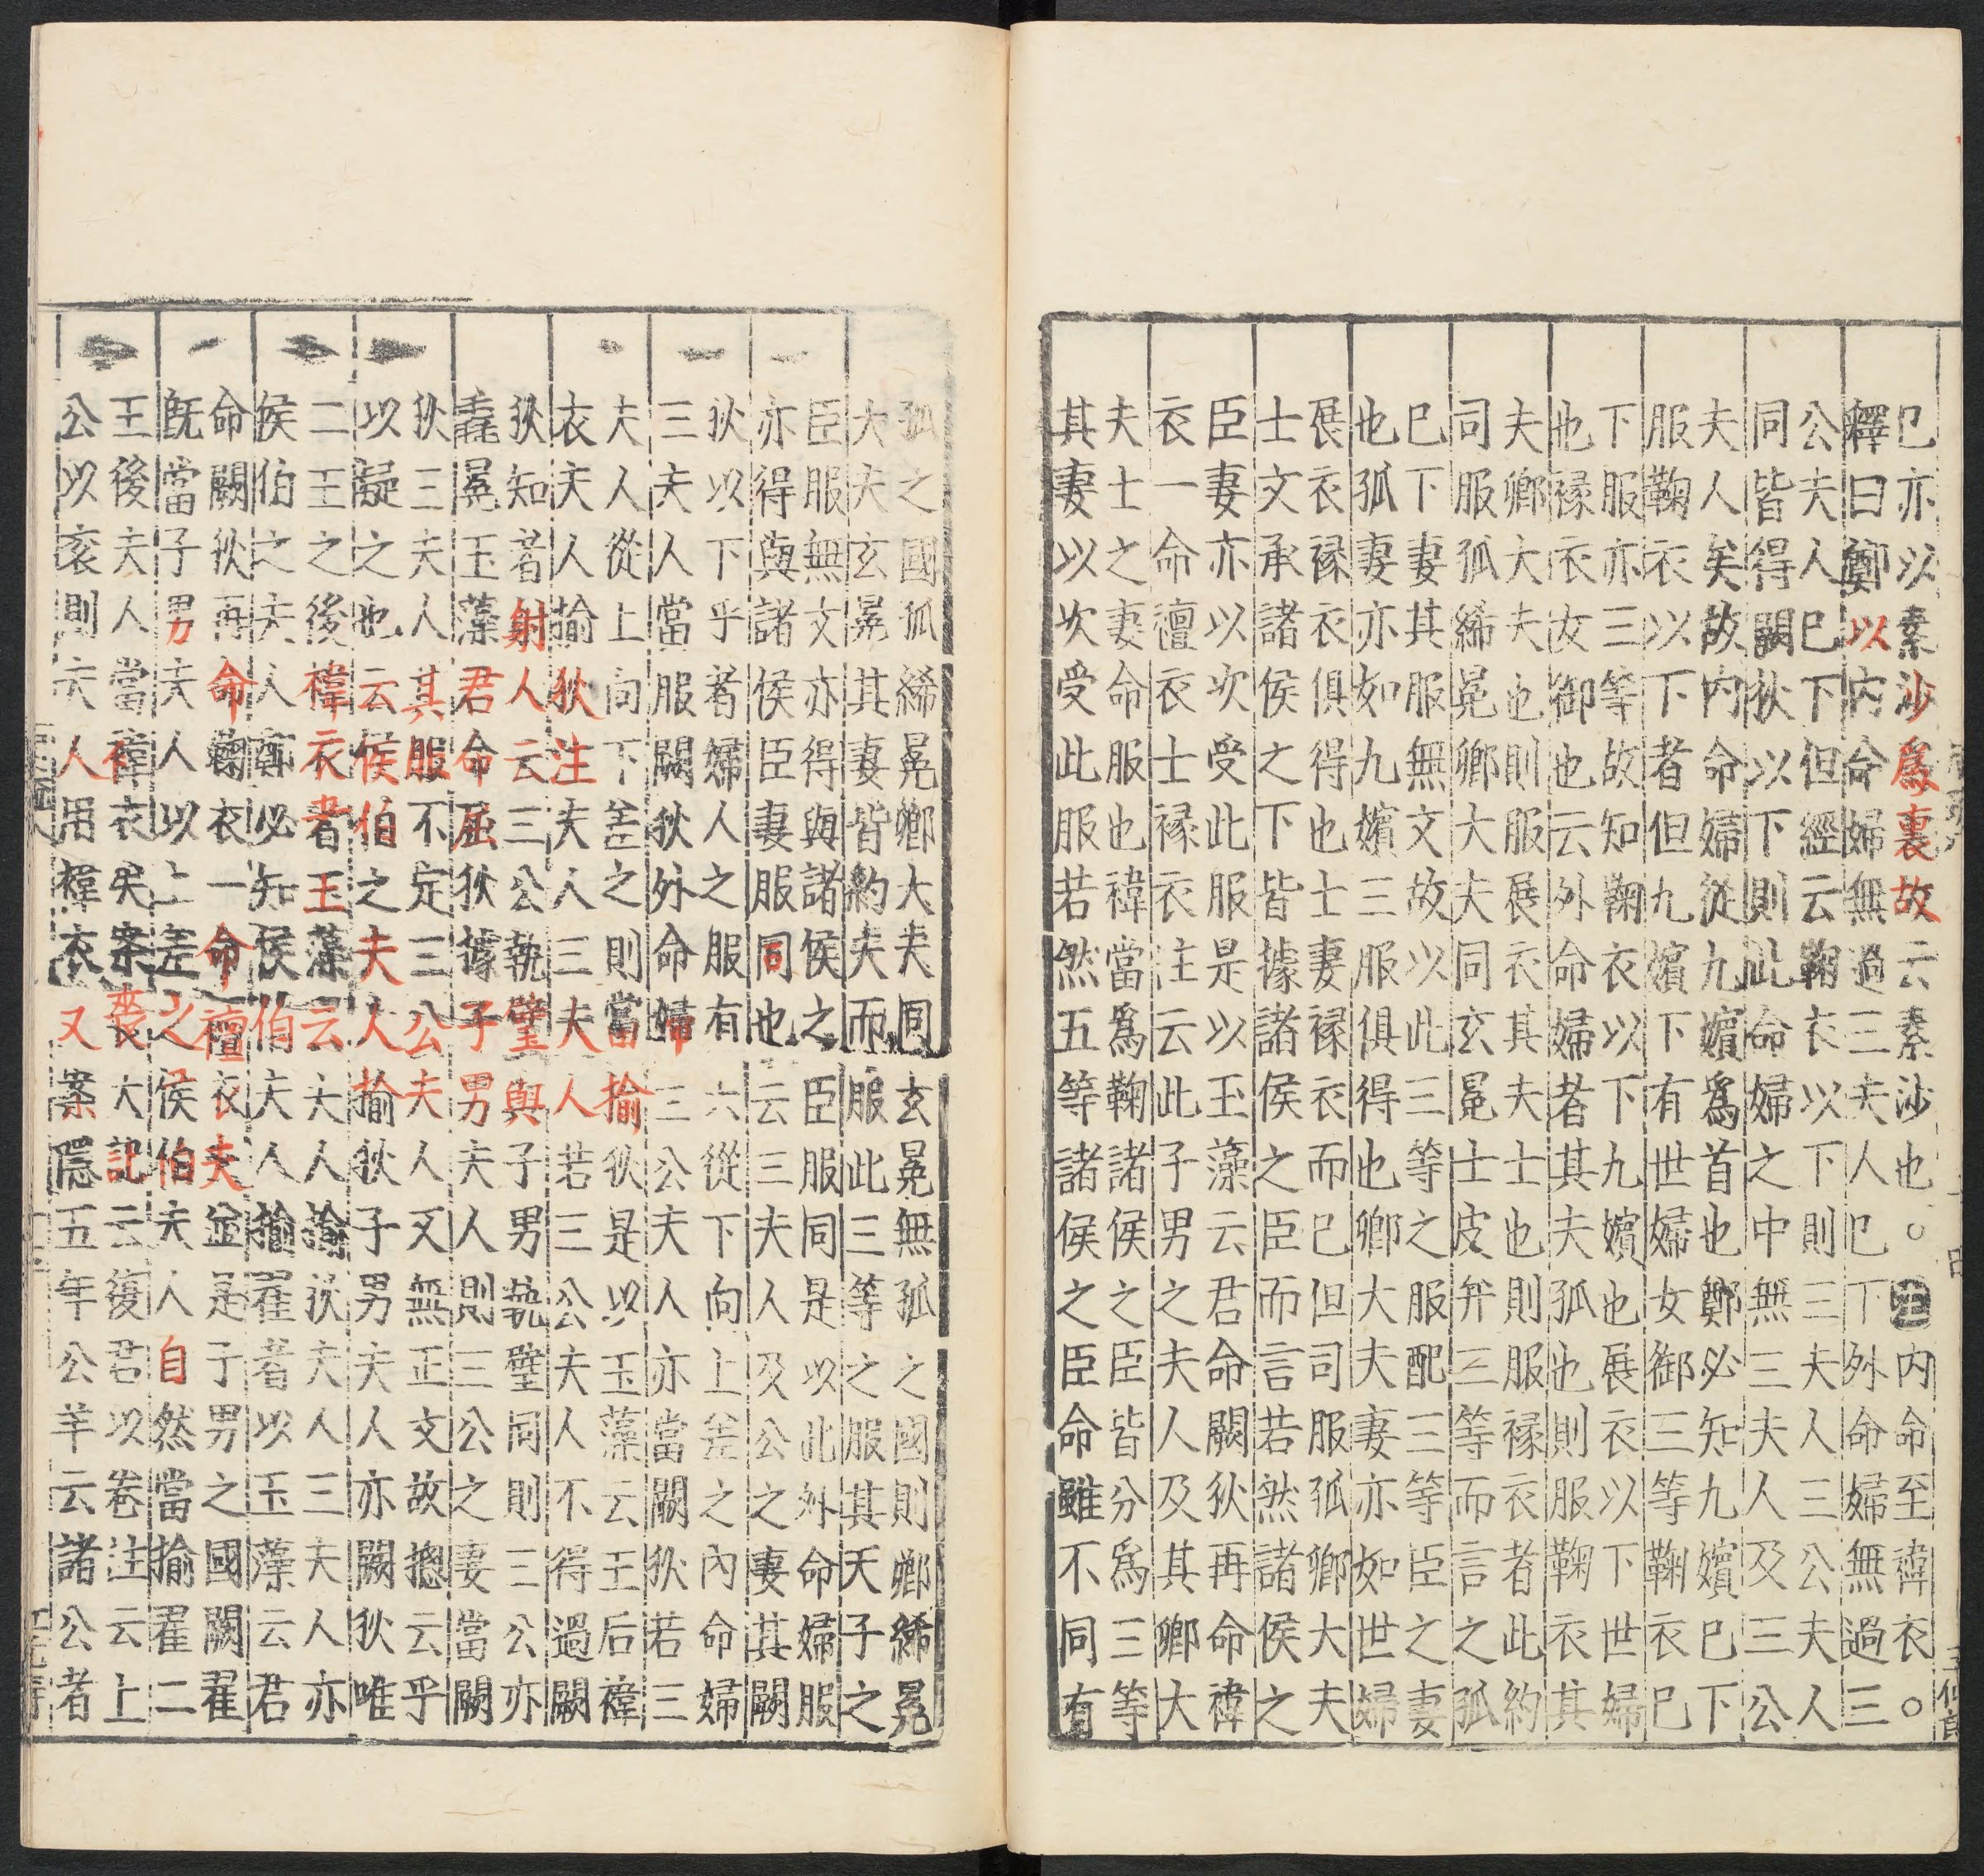 已亦以素沙為裏故云素沙也○注内命至禕衣○
釋曰鄭以内命婦無過三夫人已下外命婦無過三
公夫人已下但經云鞠衣以下則三夫人三公夫人
同皆得闕狄以下則此命婦之中無三夫人及三公
夫人矣故内命婦從九嬪為首也鄭必知九嬪已下
服鞠衣以下者但九嬪下有世婦女御三等鞠衣已
下服亦三等故知鞠衣以下九嬪也展衣以下世婦
也褖衣女御也云外命婦者其夫孤也則服鞠衣其
夫卿大夫也則服展衣其夫士也則服褖衣者此約
司服孤絺冕卿大夫同玄冕士皮弁三等而言之孤
已下妻其服無文故以此三等之服配三等臣之妻
也孤妻亦如九嬪三服俱得也卿大夫妻亦如世婦
展衣褖衣俱得也士妻褖衣而已但司服孤卿大夫
士文承諸侯之下皆據諸侯之臣而言若然諸侯之
臣妻亦以次受此服是以玉藻云君命闕狄再命禕
衣一命襢衣士褖衣注云此子男之夫人及其卿大
夫士之妻命服也禕當為鞠諸侯之臣皆分為三等
其妻以次受此服若然五等諸侯之臣命雖不同有
孤之國孤絺冕卿大夫同玄冕無孤之國則卿絺冕
大夫玄冕其妻皆約夫而服此三等之服其天子之
臣服無文亦得與諸侯之臣服同是以此外命婦服
亦得與諸侯臣妻服同也云三夫人及公之妻其闕
狄以下乎者婦人之服有六從下向上差之内命婦
三夫人當服闕狄外命婦三公夫人亦當闕狄若三
夫人從上向下差之則當揄狄是以玉藻云王后禕
衣夫人揄狄注夫人三夫人若三公夫人不得過闕
狄知者射人云三公執璧與子男執璧同則三公亦
毳冕玉藻君命屈狄據子男夫人則三公之妻當闕
狄三夫人其服不定三公夫人又無正文故摠云乎
以疑之也云侯伯之夫人揄狄子男夫人亦闕狄唯
二王之後禕衣者玉藻云夫人揄狄夫人三夫人亦
侯伯之夫人鄭必知侯伯夫人揄翟者以玉藻云君
命闕狄再命鞠衣一命襢衣夫並是子男之國闕翟
既當子男夫人以上差之侯伯夫人自然當揄翟二
王後夫人當禕衣矣案喪大記云復君以卷注云上
公以衮則夫人用禕衣又案隱五年公羊云諸公者